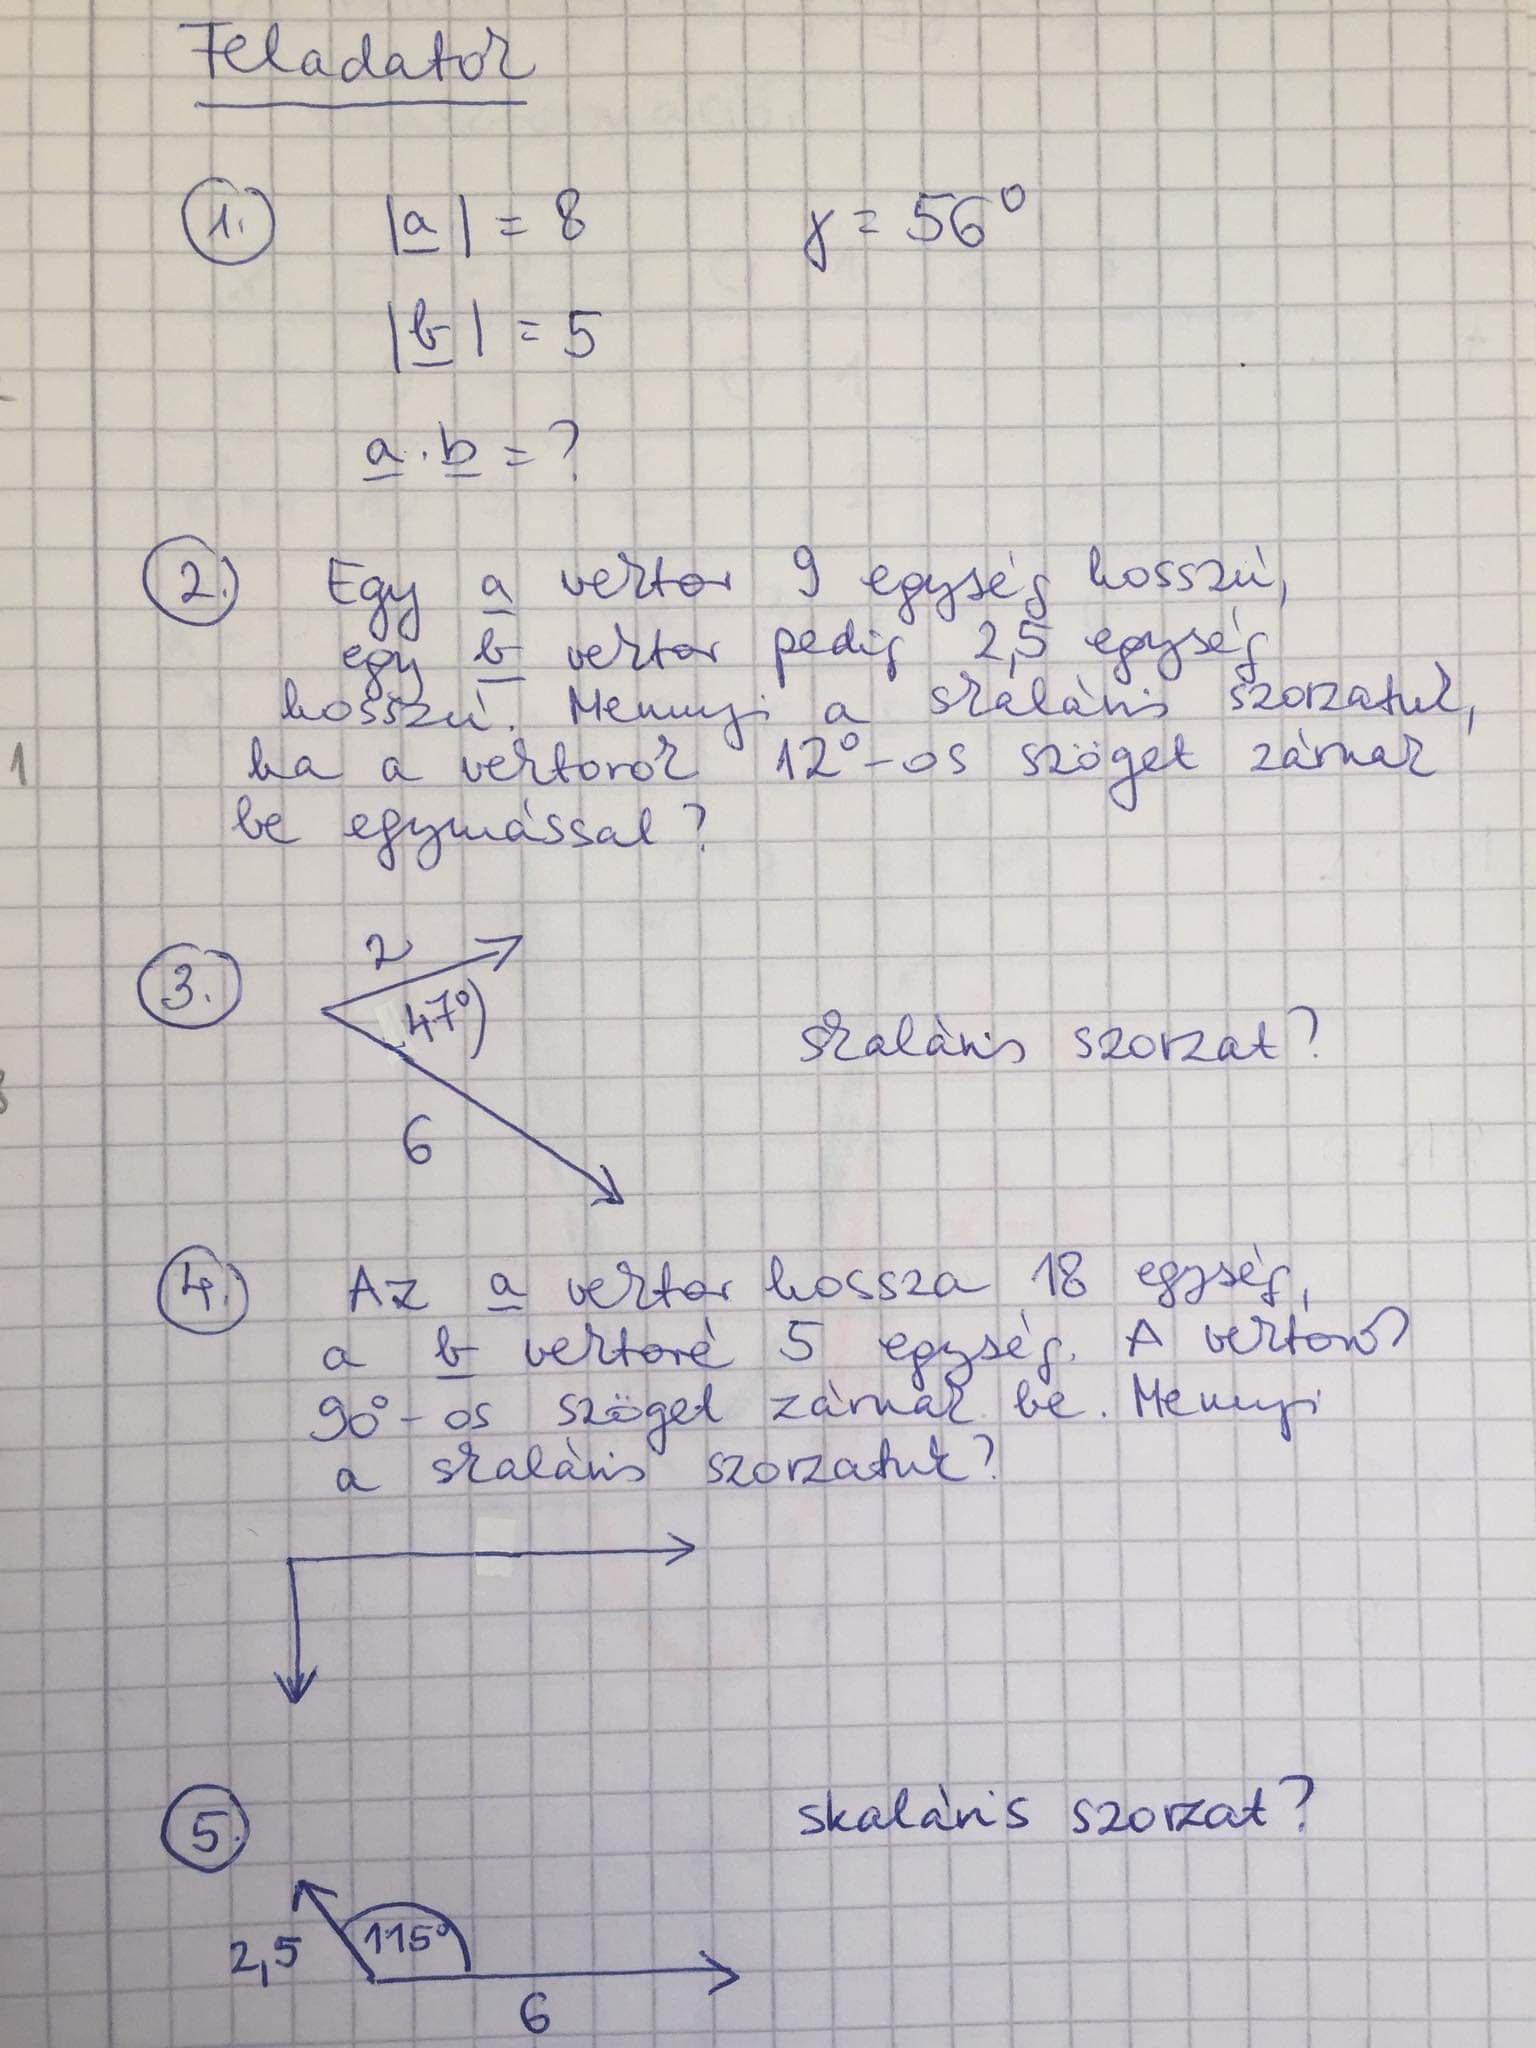 Feladatok
1. |a| = 8 γ = 56°
|b| = 5
a · b = ?
2. Egy a vektor 9 egység hosszú,
egy b vektor pedig 2,5 egység
hosszú. Mennyi a skaláris szorzatuk,
ha a vektorok 12°-os szöget zárnak
be egymással?
3. 2
47°
skaláris szorzat?
6
4. Az a vektor hossza 18 egység,
a b vektoré 5 egység. A vektorok
90°-os szöget zárnak be. Mennyi
a skaláris szorzatuk?
5. skaláris szorzat?
2,5 115°
6